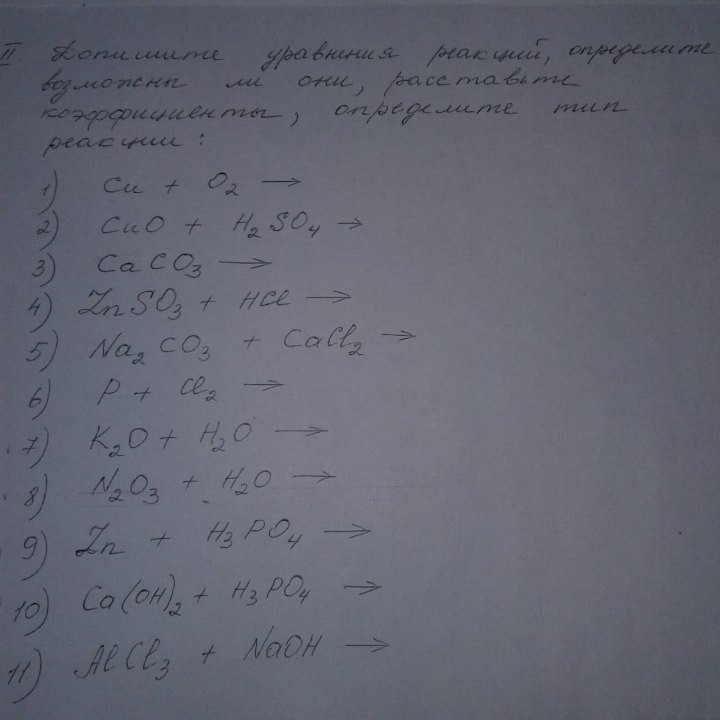 II. Допишите уравнения реакций, определите
возможны ли они, расставьте
коэффициенты, определите тип
реакции:
1) Cu + O₂ →
2) CuO + H₂SO₄ →
3) CaCO₃ →
4) ZnSO₃ + HCl →
5) Na₂CO₃ + CaCl₂ →
6) P + Cl₂ →
7) K₂O + H₂O →
8) N₂O₃ + H₂O →
9) Zn + H₃PO₄ →
10) Ca(OH)₂ + H₃PO₄ →
11) AlCl₃ + NaOH →